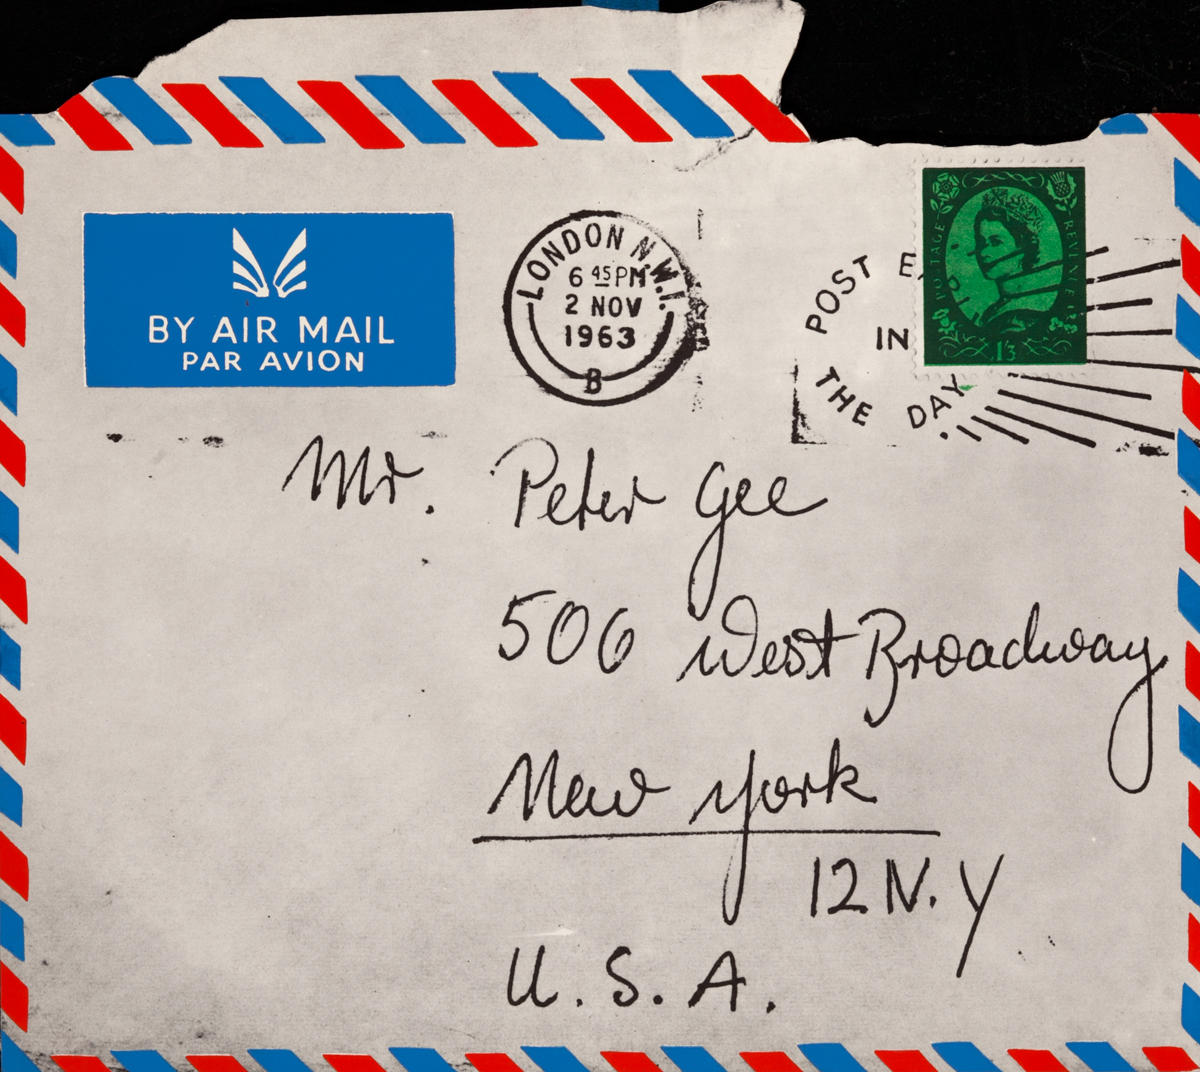 BY AIR MAIL
PAR AVION
LONDON N.W.1.
6 45 PM
2 NOV
1963
B
POST E
IN
THE DAY
POSTAGE REVENUE
1/3
Mr. Peter Gee
506 West Broadway
New York
12 N.Y
U.S.A.